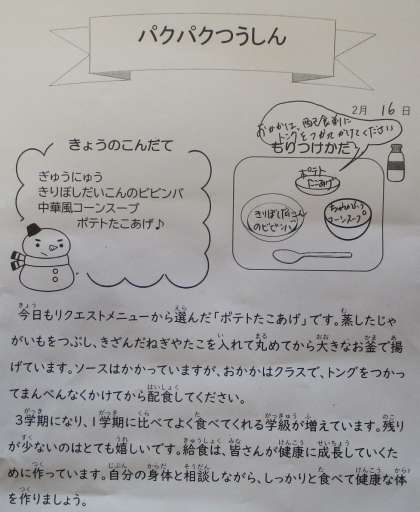 パクパクつうしん
2月 16日
おかかは、配食前に
トングをつかってかけてください
きょうのこんだて
もりつけかた
ぎゅうにゅう
きりぼしだいこんのビビンバ
中華風コーンスープ
ポテトたこあげ♪
ポテト
たこあげ
きりぼしだいこん
のビビンバ
ちゅうかふう
コーンスープ
今日もリクエストメニューから選んだ「ポテトたこあげ」です。蒸したじゃ
がいもをつぶし、きざんだねぎやたこを入れて丸めてから大きなお釜で揚
げています。ソースはかかっていますが、おかかはクラスで、トングをつかっ
てまんべんなくかけてから配食してください。
3学期になり、1学期に比べてよく食べてくれる学級が増えています。残り
が少ないのはとても嬉しいです。給食は、皆さんが健康に成長していくた
めに作っています。自分の身体と相談しながら、しっかりと食べて健康な体
を作りましょう。